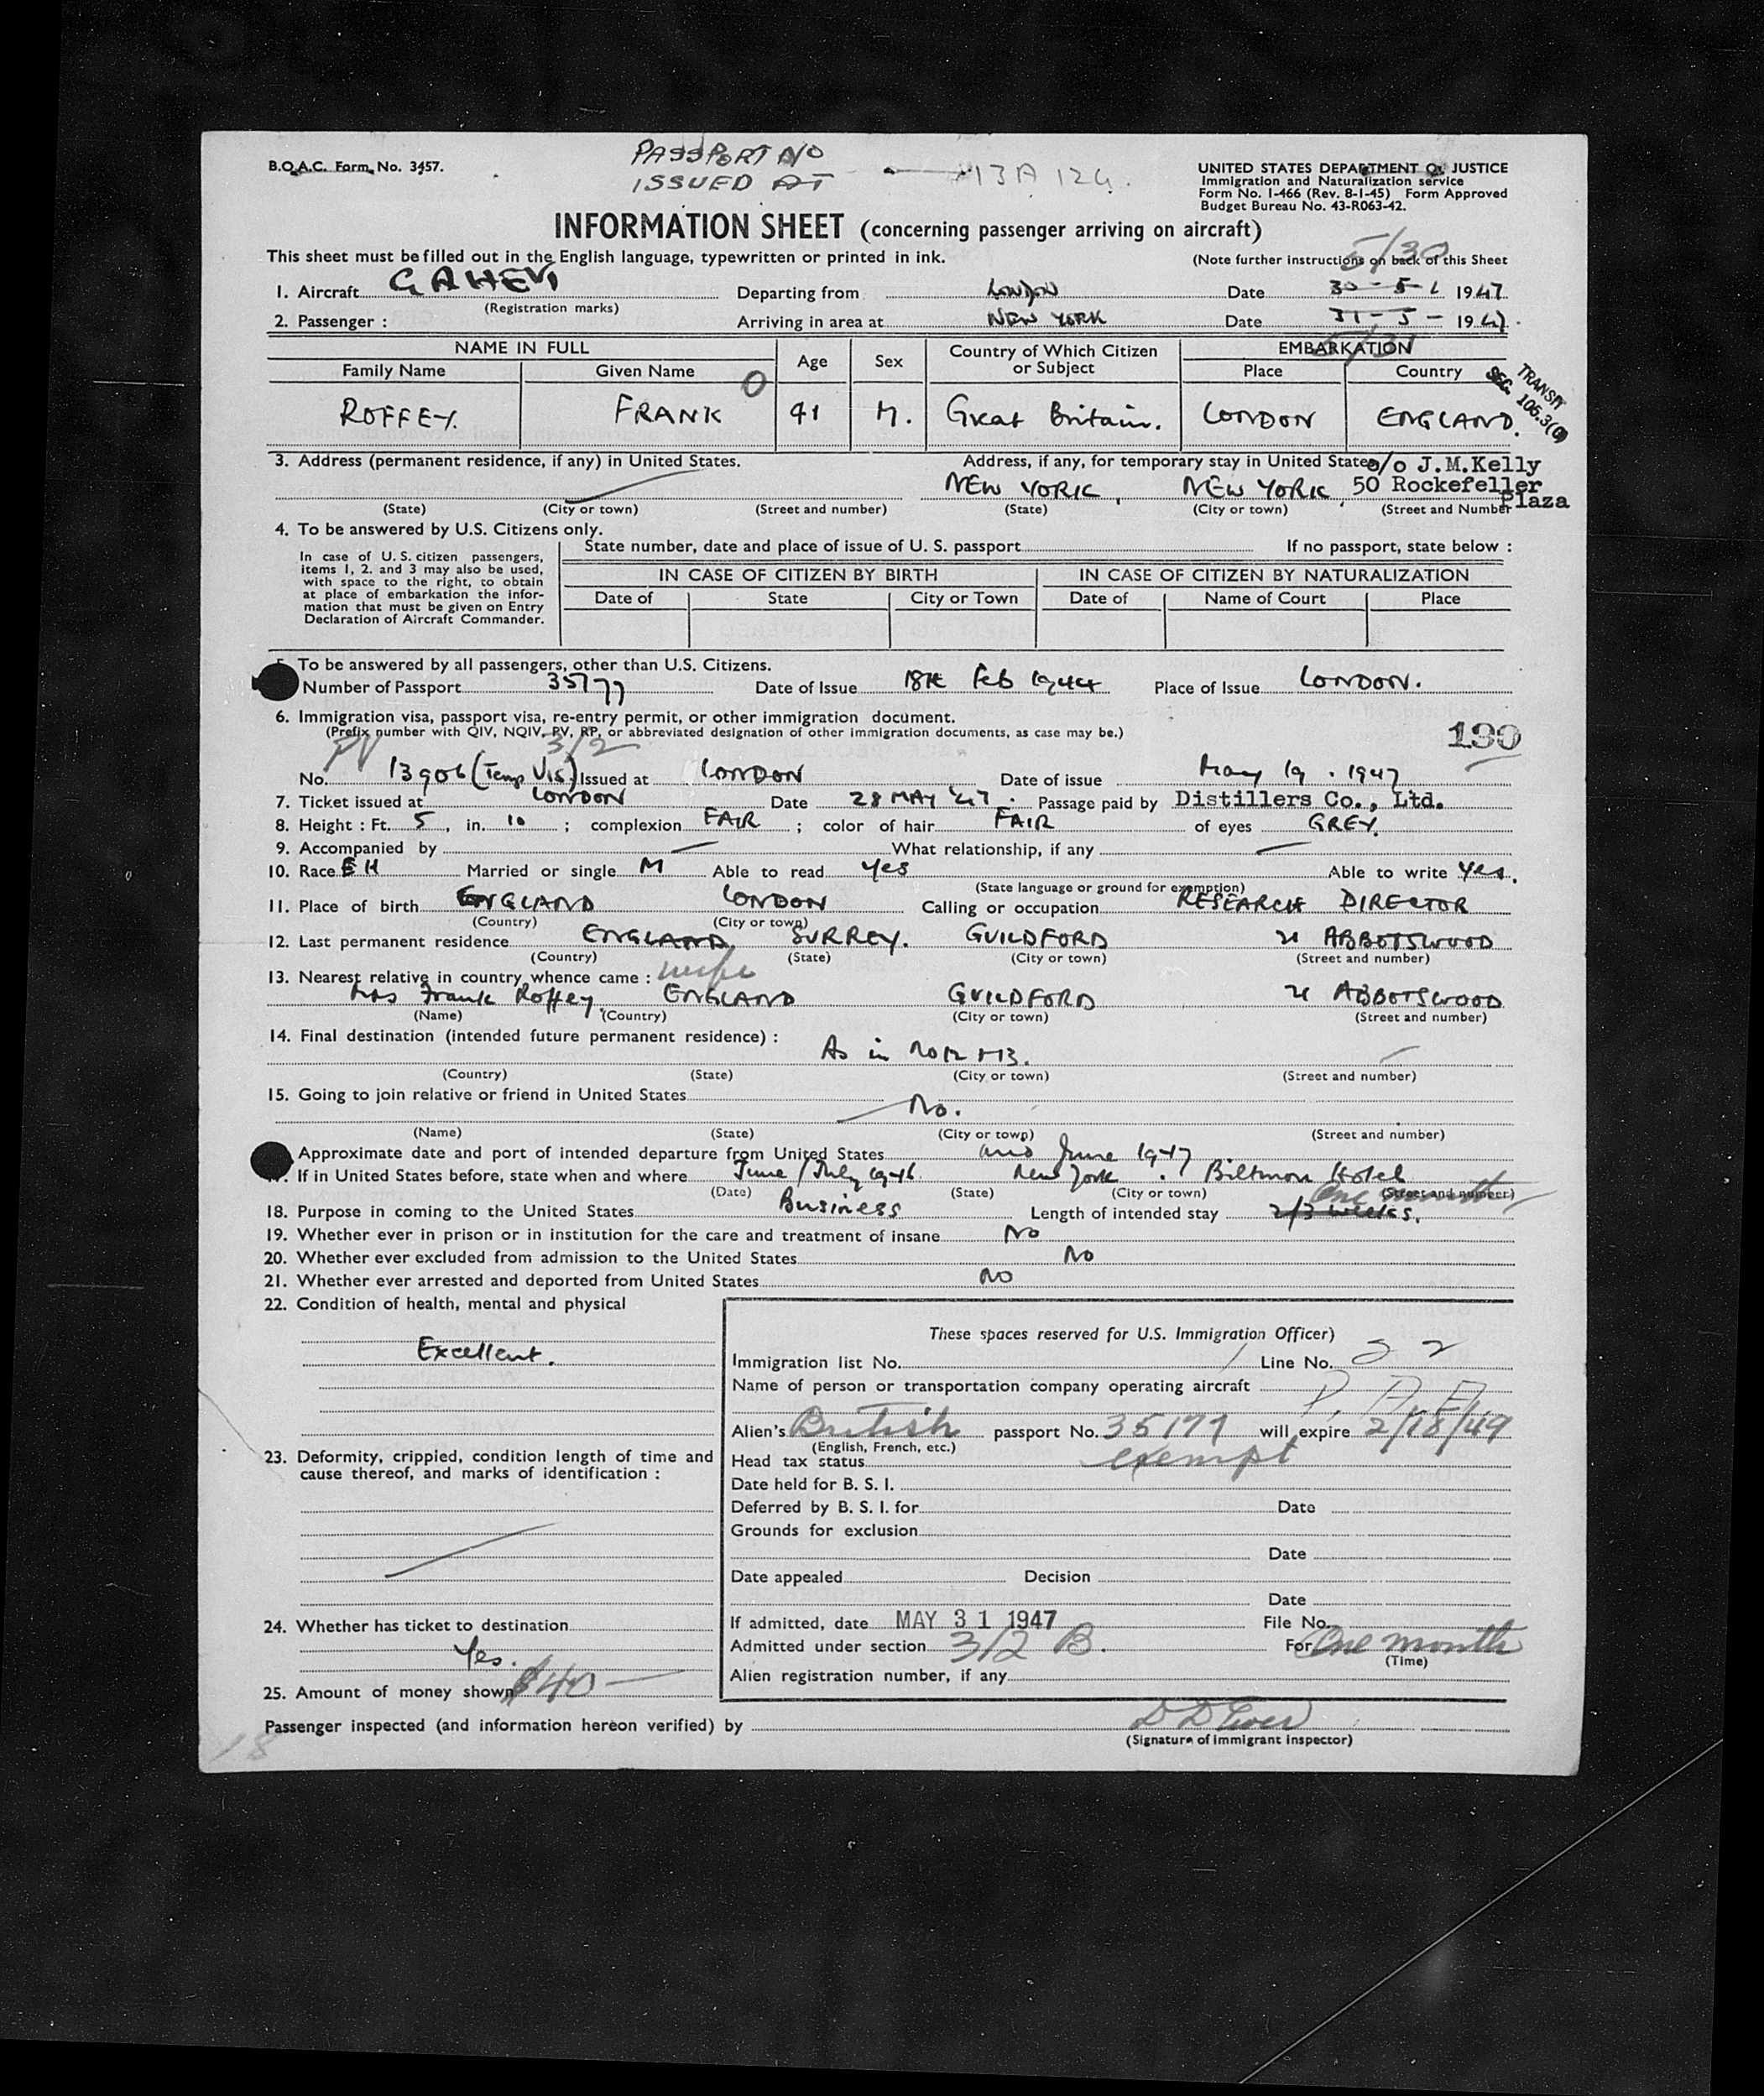 B.O.A.C. Form No. 3457.
PASSPORT NO
ISSUED AT
13A 12G.
UNITED STATES DEPARTMENT OF JUSTICE
Immigration and Naturalization service
Form No. I-466 (Rev. 8-1-45) Form Approved
Budget Bureau No. 43-R063-42.
INFORMATION SHEET (concerning passenger arriving on aircraft)
This sheet must be filled out in the English language, typewritten or printed in ink.
(Note further instructions on back of this Sheet
5/30
1. Aircraft GAHEN Departing from LONDON Date 30-5- 1947
(Registration marks)
2. Passenger : Arriving in area at NEW YORK Date 31-5- 1947.
5/31
NAME IN FULL Age Sex Country of Which Citizen or Subject EMBARKATION
Family Name Given Name Place Country
TRANSIT
SEC. 106.3(G)
ROFFEY. FRANK O 41 M. Great Britain. LONDON ENGLAND.
3. Address (permanent residence, if any) in United States. Address, if any, for temporary stay in United States c/o J.M.Kelly
NEW YORK, NEW YORK, 50 Rockefeller Plaza
(State) (City or town) (Street and number) (State) (City or town) (Street and Number
4. To be answered by U.S. Citizens only.
In case of U.S. citizen passengers, items 1, 2. and 3 may also be used, with space to the right, to obtain at place of embarkation the information that must be given on Entry Declaration of Aircraft Commander.
State number, date and place of issue of U. S. passport If no passport, state below :
IN CASE OF CITIZEN BY BIRTH IN CASE OF CITIZEN BY NATURALIZATION
Date of State City or Town Date of Name of Court Place
5. To be answered by all passengers, other than U.S. Citizens.
Number of Passport 35177 Date of Issue 18th Feb 1944 Place of Issue LONDON.
6. Immigration visa, passport visa, re-entry permit, or other immigration document.
(Prefix number with QIV, NQIV, PV, RP, or abbreviated designation of other immigration documents, as case may be.)
130
PV 3/2
No. 13906 (Temp Vis) Issued at LONDON Date of issue May 19. 1947
7. Ticket issued at LONDON Date 28 MAY '47. Passage paid by Distillers Co., Ltd.
8. Height : Ft. 5, in. 10 ; complexion FAIR ; color of hair FAIR of eyes GREY.
9. Accompanied by — What relationship, if any —
10. Race EH Married or single M Able to read Yes Able to write Yes.
(State language or ground for exemption)
11. Place of birth ENGLAND LONDON Calling or occupation RESEARCH DIRECTOR
(Country) (City or town)
12. Last permanent residence ENGLAND, SURREY. GUILDFORD 21 ABBOTSWOOD
(Country) (State) (City or town) (Street and number)
13. Nearest relative in country whence came : wife
Mrs Frank Roffey. ENGLAND GUILDFORD 21 ABBOTSWOOD
(Name) (Country) (City or town) (Street and number)
14. Final destination (intended future permanent residence) :
As in No 12 + 13.
(Country) (State) (City or town) (Street and number)
15. Going to join relative or friend in United States
No.
(Name) (State) (City or town) (Street and number)
Approximate date and port of intended departure from United States mid June 1947
17. If in United States before, state when and where June/July 1946. New York. Biltmore Hotel
(Date) (State) (City or town) (Street and number)
One month
18. Purpose in coming to the United States Business Length of intended stay 2/3 weeks.
19. Whether ever in prison or in institution for the care and treatment of insane No
20. Whether ever excluded from admission to the United States No
21. Whether ever arrested and deported from United States NO
22. Condition of health, mental and physical
Excellent.
23. Deformity, crippled, condition length of time and cause thereof, and marks of identification :
24. Whether has ticket to destination
Yes.
25. Amount of money shown $40 —
These spaces reserved for U.S. Immigration Officer)
Immigration list No. / Line No. 22
Name of person or transportation company operating aircraft P. A. A
Alien's British passport No. 35177 will expire 2/18/49
(English, French, etc.)
Head tax status exempt
Date held for B. S. I.
Deferred by B. S. I. for Date
Grounds for exclusion
Date
Date appealed Decision
Date
If admitted, date MAY 31 1947 File No.
Admitted under section 3/2 B. For One month
(Time)
Alien registration number, if any
Passenger inspected (and information hereon verified) by
(Signature of Immigrant Inspector)
18